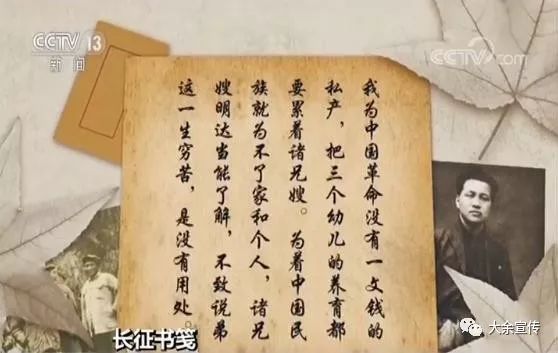 CCTV 13
新闻
CCTV.com
我为中国革命没有一文钱的
私产，把三个幼儿的养育都
要累着诸兄嫂。为着中国民
族就为不了家和个人，诸兄
嫂明达当能了解，不致说弟
这一生穷苦，是没有用处
长征书笺
大余宣传